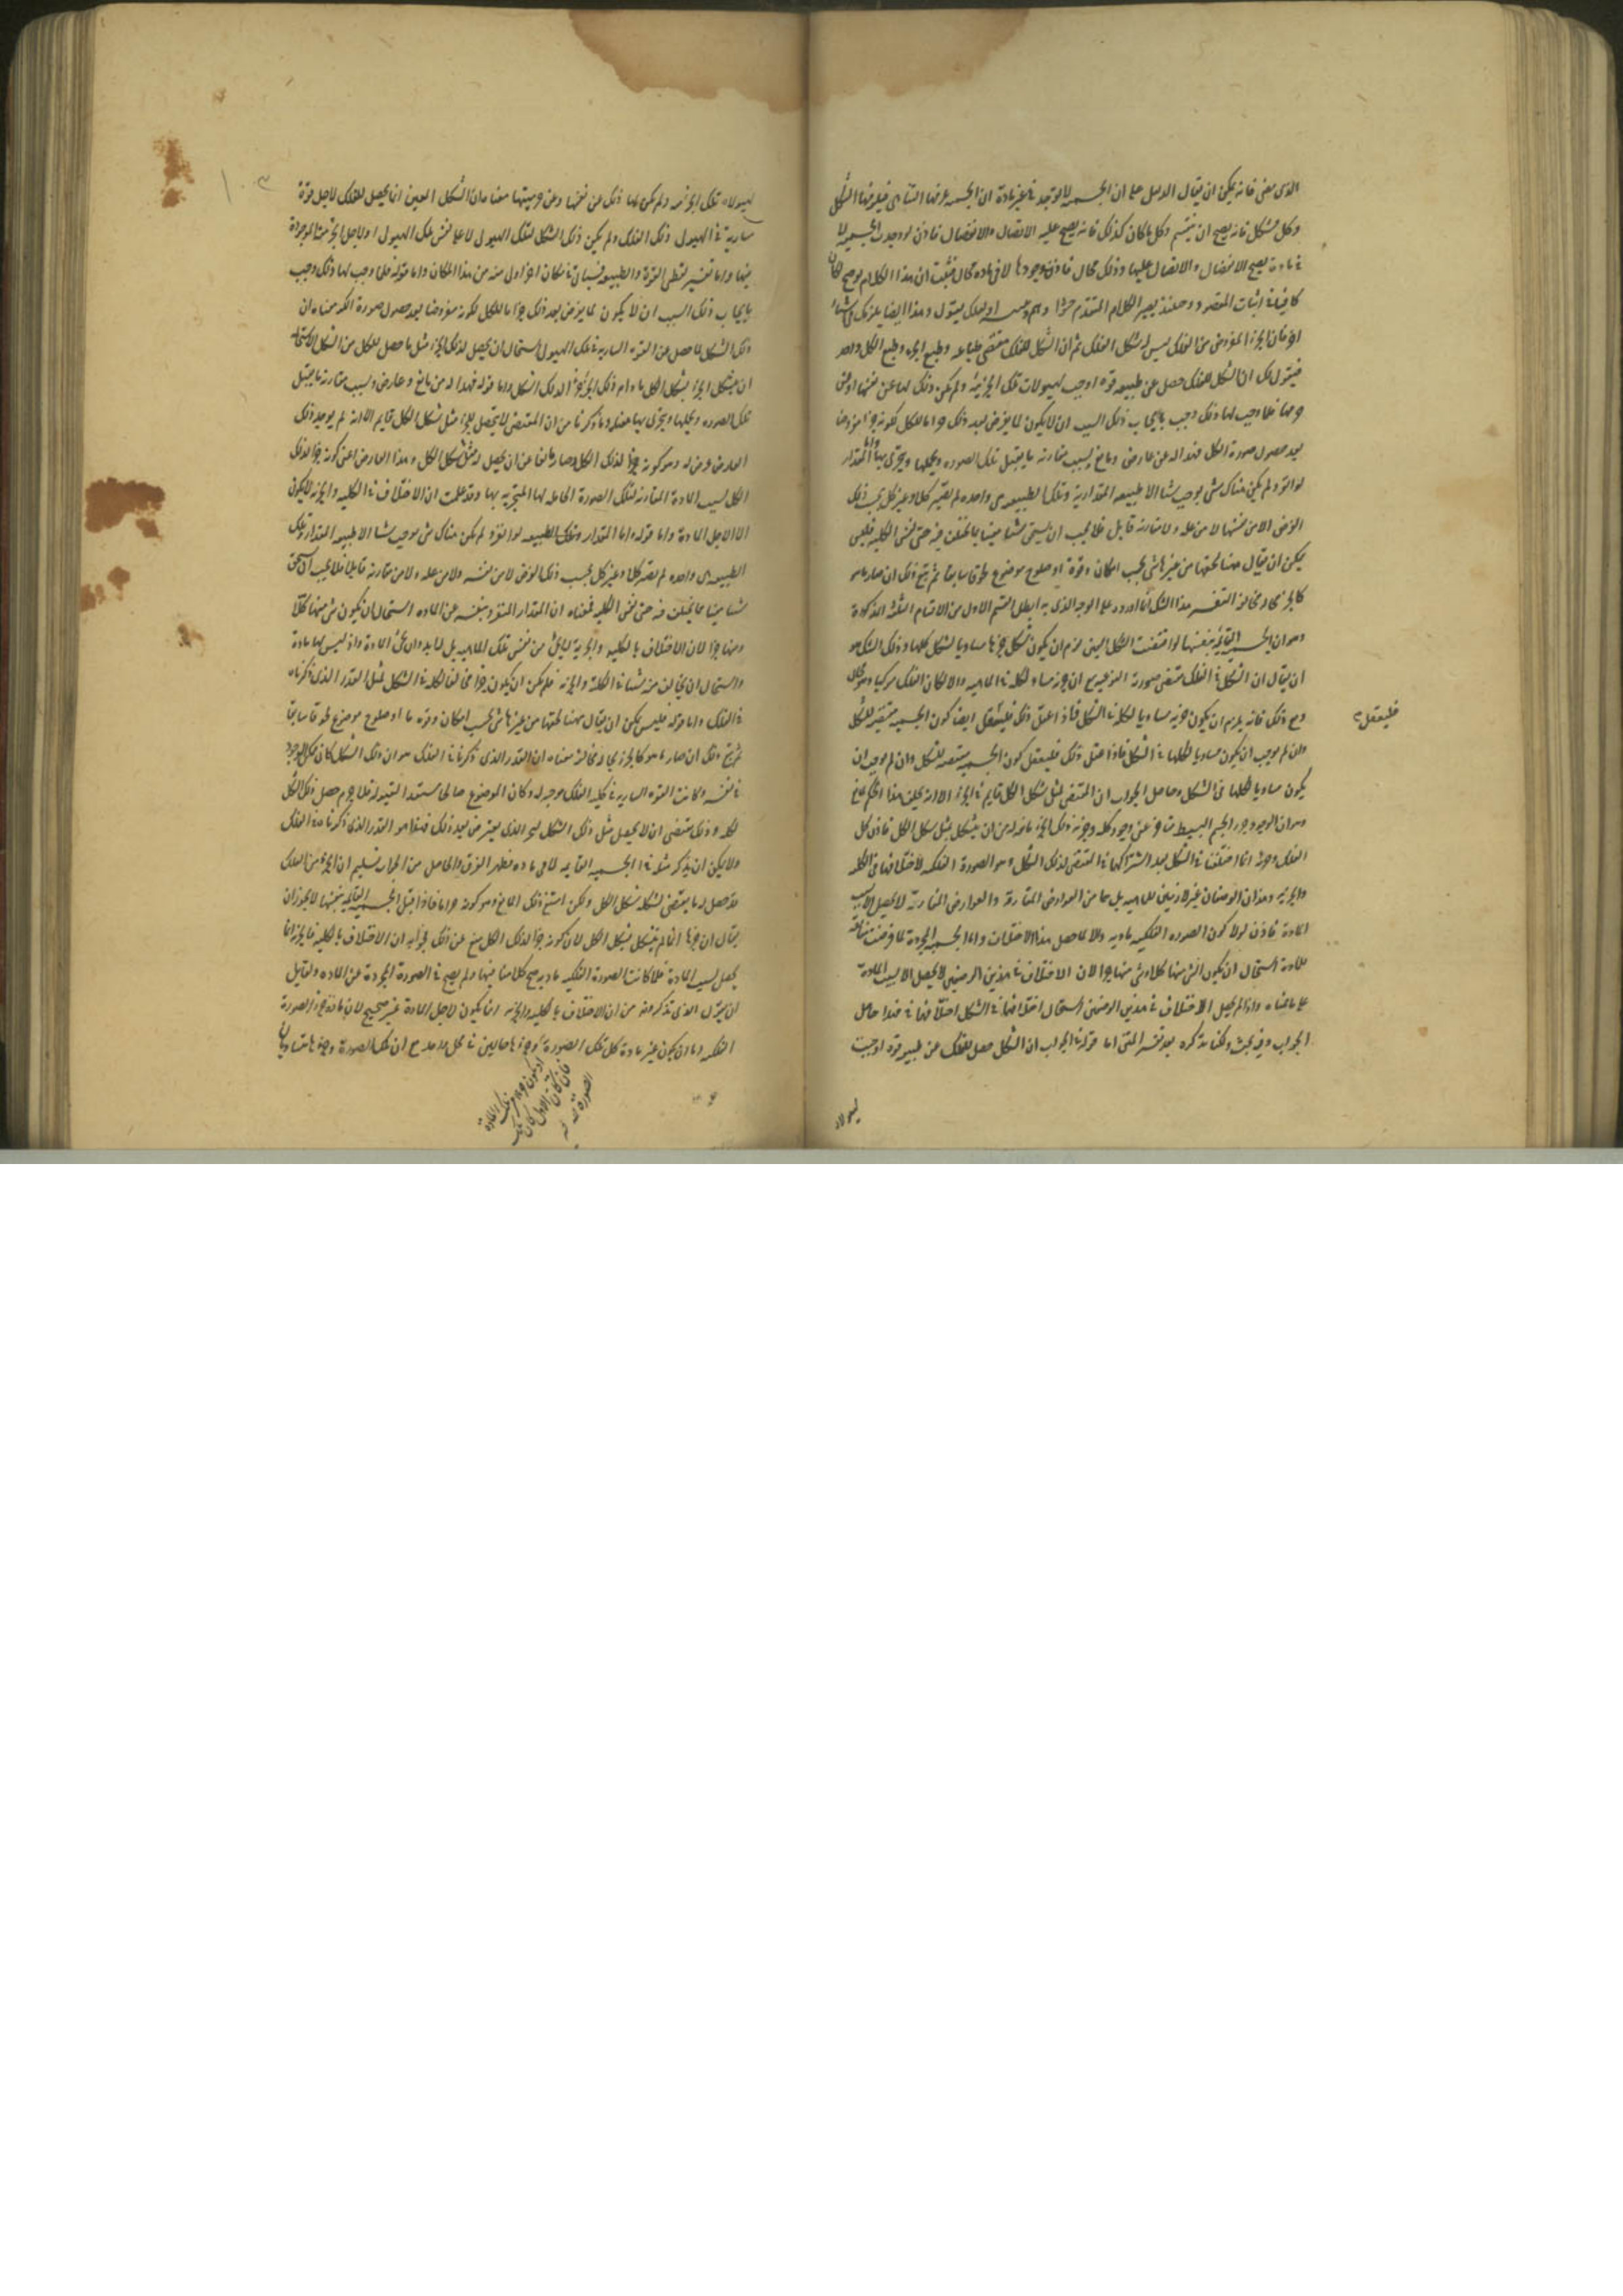 الذى مضى فانه يمكن ان يقال الدليل على ان الجسمية لا توجد فى غير مادة ان الجسمية يلزمها التناهى فيلزمها الشكل
وكل متشكل فانه يصح ان ينقسم وكل ما كان كذلك فانه يصح عليه الاتصال والانفصال فاذن لو وجدت الجسمية لا
فى مادة يصح الانفصال والاتصال عليها وذلك محال فاذن وجودها لا فى مادة محال فثبت ان هذا الكلام لو صح لكان
كافيا فى اثبات المقصود وحينئذ يصير الكلام المتقدم حشوا وهم وتنبيه او لعلك تقول وهذا ايضا يلزمك فى اشياء
اخر فان الجزء المفروض من الفلك ليس له شكل الفلك ثم ان الشكل للفلك مقتضى طباعه وطبع الجزء وطبع الكل واحد
فنقول لك ان الشكل للفلك حصل عن طبيعة قوة اوجبت لهيولاه تلك الجرمية ولم يكن ذلك لها عن نفسها او عن
جرميتها فلما وجب لها ذلك وجب بايجاب ذلك السبب ان لا يكون لما يفرض بعد ذلك جزءا ما للكل لكونه جزءا مفروضا
بعد حصول صورة الكل فهذا له عن عارض ومانع بسبب مقارنة ما يقبل تلك الصورة ويحلها ويتجزى بها واما المقدار
لو انفرد ولم يكن هناك شىء يوجب شيئا الا طبيعة المقدارية وتلك الطبيعة هى واحدة لم يصر كلا وغير كل بحسب ذلك
الفرض الا من نفسها لا من علة ولا مقارنة قابل فلا يجب ان يستحق شيئا معينا مما يختلف فيه حتى نفس الكلية فليس
يمكن ان يقال ههنا لحقها من غيرها شىء بحسب امكان وقوة او صلوح موضوع لحوقا سابقا ثم تبع ذلك ان صار ما هو
كالجزء يخالفه التفسير هذا الشك انما اورد على الوجه الذى به ابطل القسم الاول من الاقسام الثلثة المذكورة
وهو ان الجسمية القائمة بنفسها لو اقتضت الشكل المعين لزم ان يكون شكل جزءها مساويا لشكل كلها وذلك الشك هو
ان يقال ان الشكل فى الفلك مقتضى صورته النوعية مع ان جزءه مساو لكله فى الماهية والا لكان الفلك مركبا وهو محال
ومع ذلك فانه يلزم ان يكون جزءه مساويا لكله فى الشكل فاذا عقل ذلك فليعقل ايضا كون الجسمية مقتضية للشكل
وان لم يوجب ان يكون مساويا لكلها فى الشكل فاذا عقل ذلك فليعقل كون الجسمية مقتضية للشكل وان لم يوجب ان
يكون مساويا لكلها فى الشكل وحاصل الجواب ان المقتضى لمثل شكل الكل قايم فى الجزء الا انه تخلف هذا الحكم لمانع
وهو ان الوجه وجود الجسم البسيط متأخر عن وجود كله وجزئية ذلك الجزء مانعة له من ان يتشكل بمثل شكل الكل فاذن كل
الفلك وجزؤه انما اختلفا فى الشكل بعد اشتراكهما فى المقتضى لذلك الشكل وهو الصورة الفلكية لاختلافهما فى الكلية
والجزئية وهذان الوصفان غير لازمين للماهية بل هما من العوارض المفارقة والعوارض المفارقة لا تحصل الا بسبب
المادة فاذن لولا كون الصورة الفلكية مادية والا لما حصل هذا الاختلاف واما الجسمية المجردة لما فرضت منافية
للمادة استحال ان يكون شىء منها كلا وشىء منها جزءا لان الاختلاف فى هذين الوصفين لا يحصل الا بسبب المادة
على ما بيناه واذا لم يحصل الاختلاف فى هذين الوصفين استحال اختلافهما فى الشكل اختلافهما فى فهذا حاصل
الجواب وفيه بحث ولكنا نذكره بعد تفسير المتن اما قوله فى الجواب ان الشكل حصل للفلك عن طبيعة قوة اوجبت
لهيولاه
فليعقل
لهيولاه تلك الجرمية ولم يكن لها ذلك عن نفسها وعن جرميتها معناه ان الشكل المعين انما يحصل للفلك لاجل قوة
سارية فى الهيولى ذلك الفلك ولم يكن ذلك الشكل لتلك الهيولى لاجل نفس تلك الهيولى او لاجل الجرمية الموجودة
فيها واما تفسير لفظى القوة والطبيعة فسيأتى فى مكان آخر اولى منه من هذا المكان واما قوله فلما وجب لها ذلك وجب
بايجاب ذلك السبب ان لا يكون لما يفرض بعد ذلك جزءا ما للكل لكونه مفروضا بعد حصول صورة الكل معناه ان
ذلك الشكل لما حصل عن القوة السارية فى تلك الهيولى استحال ان يحصل لذلك الجزء مثل ما حصل للكل من الشكل لاستحالة
ان يتشكل الجزء بشكل الكل ما دام ذلك الجزء جزءا لذلك الشكل واما قوله فهذا له من مانع وعارض وبسبب مقارنة ما يقبل
تلك الصورة ويحلها ويتجزى بها معناه ما ذكرنا من ان المقتضى لا يحصل للجزء مثل شكل الكل قايم الا انه لم يوجد ذلك
العارض عرض له وهو كونه جزءا لذلك الكل وصار مانعا عن ان يحصل له مثل شكل الكل وهذا العارض اعنى كونه جزءا لذلك
الكل بسبب المادة المقارنة لتلك الصورة الحاملة لها المتجزية بها وقد علمت ان الاختلاف فى الكلية والجزئية لا يكون
الا لاجل المادة واما قوله واما المقدار وتلك الطبيعة لو انفرد ولم يكن هناك شىء يوجب شيئا الا طبيعة المقدار وتلك
الطبيعة هى واحدة لم يصر كلا وغير كل بحسب ذلك الفرض لا من نفسه ولا من علة ولا من مقارنة قابل فلا يجب ان يستحق
شيئا معينا مما يختلف فيه حتى نفس الكلية فمعناه ان المقدار المنفرد بنفسه عن المادة استحال ان يكون شىء منها كلا
ومنها جزءا لان الاختلاف بالكلية والجزئية لا يأتى من نفس تلك الماهية بل لا بد وان يكون المادة واذ ليس لها مادة
واستحال ان يخالف منه شيئا فى الكلية والجزئية فلم يكن ان يكون جزءا مخالفا لكله فى الشكل لمثل القدر الذى ذكرناه
فى الفلك واما قوله فليس يمكن ان يقال ههنا لحقها من غيرها شىء بحسب امكان وقوة ما او صلوح موضوع لحوقا سابقا
ثم تبع ذلك ان صار ما هو كالجزء يخالفه معناه ان القدر الذى ذكرناه فى الفلك هو ان ذلك الشكل كان ممكن الوجود
فى نفسه وكانت القوة السارية فى كلية الفلك موجبة له وكان الموضوع صالحا مستعدا لقبوله فلا جرم حصل ذلك الشكل
لكله وذلك مقتضى ان لا يحصل مثل ذلك الشكل للجزء الذى يفترض بعد ذلك فهذا هو القدر الذى ذكرناه فى الفلك
ولا يمكن ان يذكر مثله فى الجسمية القايمة لا فى مادة فظهر الفرق والحاصل من الجواب تسليم ان الجزء من الفلك
قد حصل له ما يقتضى لشكله شكل الكل ولكن امتنع ذلك لمانع وهو كونه جزءا ما فاذا قيل الجسمية القائمة بنفسها لا يجوز ان
يقال ان جزءها انما لم يتشكل بشكل الكل لان كونه جزءا لذلك الكل منع عن ذلك فجوابه ان الاختلاف بالكلية والجزئية انما
يحصل بسبب المادة فلما كانت الصورة الفلكية مادية صح كلامنا فيها ولم يصح فى الصورة المجردة عن المادة ولقايل
ان يقول الذى تذكرونه من ان الاختلاف بالكلية والجزئية انما يكون لاجل المادة غير صحيح لان مادة جزء الصورة
الفلكية اما ان يكون غير مادة كل تلك الصورة او جزءها حالين فى محل واحد مع ان تلك الصورة وجزءها متساويان
او يكون جزءا من تلك المادة
فان كان الاول كان تلك
الصورة